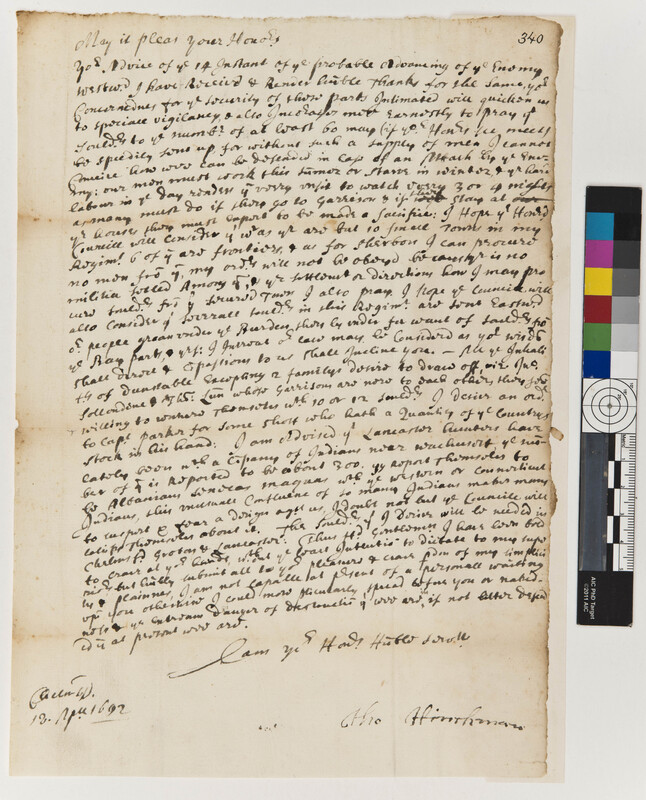 340
May it pleas your Honors
Yor Advice of ye 14 Instant of ye probable Advancing of ye Enemy
Westwd I have Receivd & Render humble Thanks for the Same, yor
Concernednes for ye Security of these parts Intimated will quicken us
to speciall vigilancy & also Incorages mee Earnestly to pray yt
Souldrs to ye number of at least 60 may (if ye Honrs see meet)
be speedily sent up, for without such a supply of men I cannot
Conceive how wee can be defended in case of an Attack by ye Ene-
my: our men must work this Sumer or starve in winter, & ye hard
labour in ye day renders ym very unfit to watch every 3 or 4 nights
as many must do if they go to Garrison & if stay at
yr houses they must Expect to be made a Sacrifice: I Hope ye Honrd
Councill will Consider yt as yr are but 10 small Towns in my
Regimt 6 of ym are frontiers, & as for Sherbon I can procure
no men from ym, my ordrs will not be obeyd becaus yr is no
militia setled Among ym, & ye setlemt or directions how I may pro
cure Souldrs from yt Secured Town I also pray. I Hope ye Councill will
also Consider yt severall Souldrs in this Regimt are sent Eastwd
or people groan under ye Burden they ly under for want of Souldrs from
ye Bay parts, & yrf: I Intreat or case may be Considered as yor wisdm
shall direct & Cipassions to us shall Incline you. — All ye Inhabi
tts of Dunstable Excepting 2 familys desire to draw off, viz Jno
Sollendine & Tho: Lun whose Garrisons are nere to Each other, they are
willing to venture themselves with 10 or 12 Souldrs I desire an ordr
to Capt Parker for some Shott who hath a Quantity of ye Countrys
Stock in his hand: I am Advised yt Lancaster hunters have
lately been with a Cipany of Indians near wachusett, ye num
ber of ym is Reported to be about 300. yy Report themselves to
be Albanians Senecas maquas with ye western or Connecticut
Indians, this unusuall Confluence of so many Indians makes many
to suspect & fear a design agst us, I doubt not but ye Councill will
satisfie themselves about it. The Souldrs yt I desire will be needed in
Chelmsfd Groton & Lancaster: Thus Hond Gentlemen I have been bold
to crave at yr hands, without ye least Intention to dictate to my supe
riors but humbly submit all to yor pleasure & crave pdon of my simplici
ty & plainnes, I am not capable at psent of a personall waiting
upon you otherwise I could more pticularly spread before you or naked-
ness & ye Extream danger of destruction yt wee are in, if not better defen
ded yn at present wee are.
I am yor Honrs Huble Servtt
Chelmsfd.
18. Apll 1692
Tho Hinchman